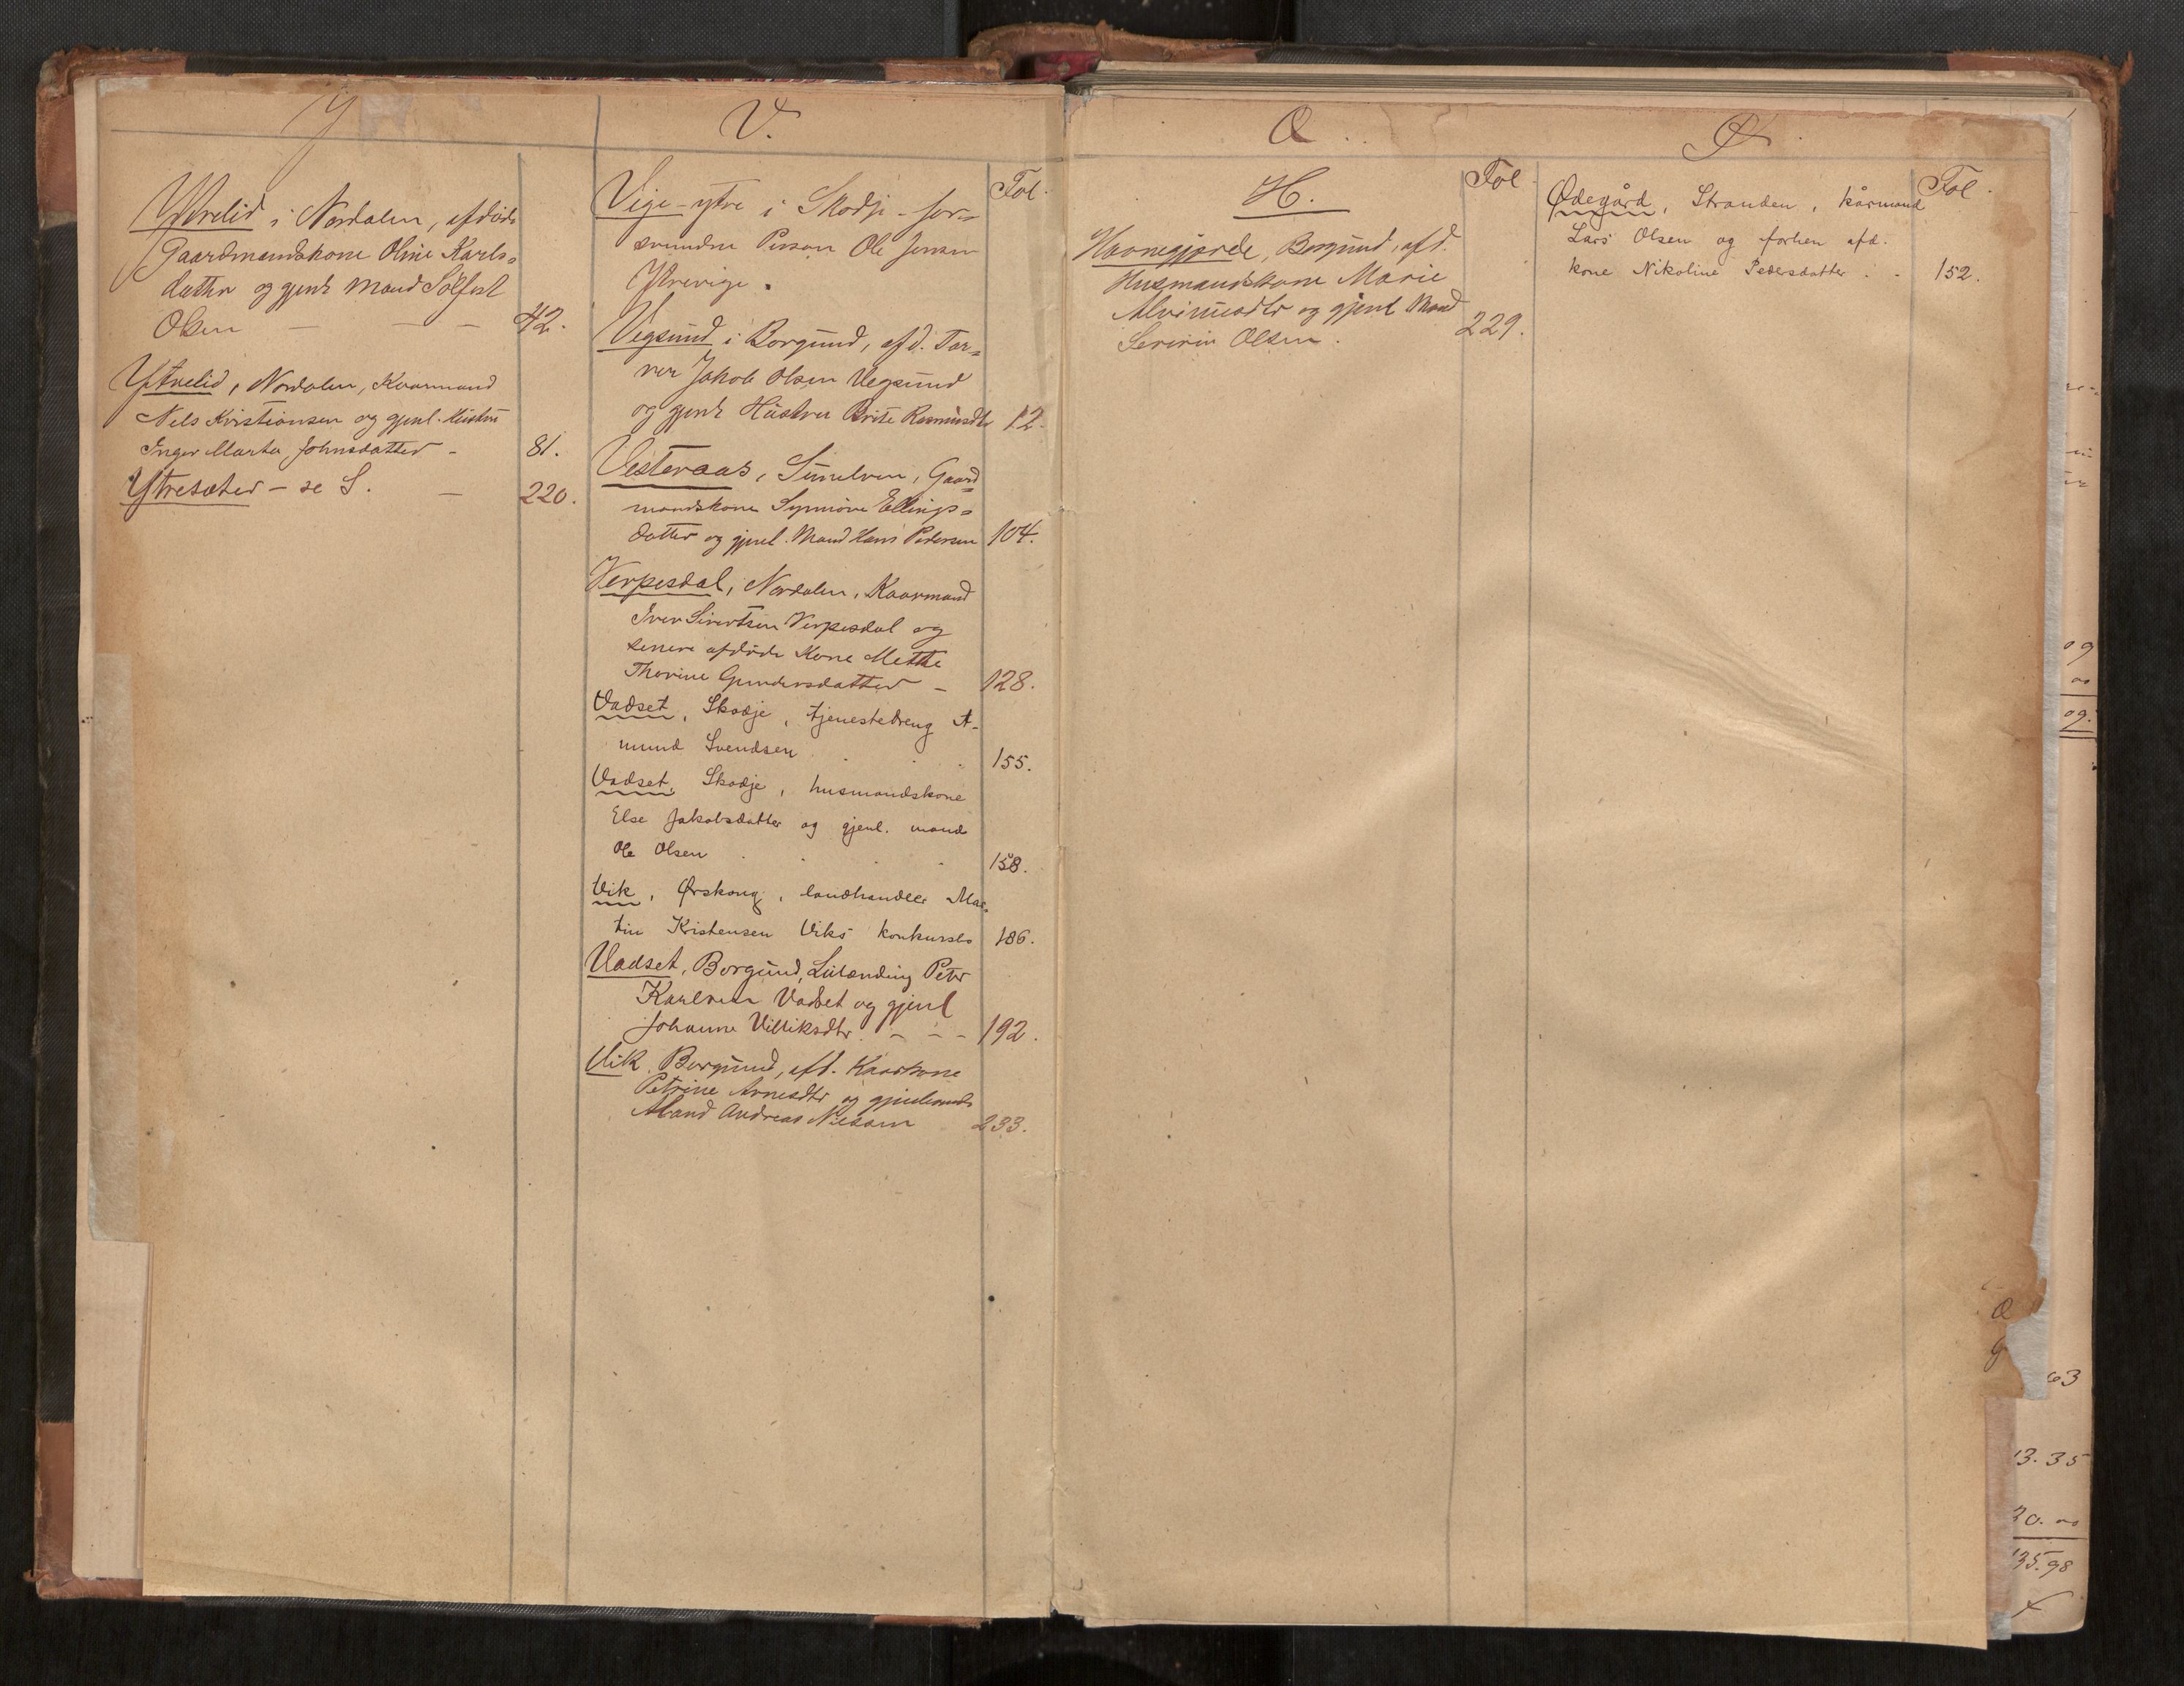 Y
Ytrelid i Nordalen, afdøde
Gaardmandskone Oline Karls=
datter og gjenl Mand Sølfest
Olsen — — — 42.
Ytrelid, Nordalen, Kaarmand
Nels Kristiansen og gjenl. Hustru
Inger Marta Johnsdatter - 81.
Ytresæter - se S. — 220.
V.
Fol.
Vige-ytre i Skodje - for=
svundne Person Ole Jensen
Ytrevige.
Vegsund i Borgund, afd.
Jakob Olsen Vegsund
og gjenl Hustru Brite Rasmusdtr 12.
Vesteraas, Sunelven, Gaard
mandskone Synnøve Ellings=
datter og gjenl. Mand Hans Pedersen 104.
Verpesdal, Nordalen, Kaarmand
Iver Sivertsen Verpesdal og
senere afdøde Kone Mette
Thorine Gundersdatter - 128.
Vadset, Skodje, tjenestedreng A-
mund Svendsen . . . 155.
Vadset, Skodje, husmandskone
Else Jakobsdatter og gjenl. mand
Ole Olsen . . . 158.
Vik, Ørskoug, landhandler Mar-
tin Kristensen Viks konkursbo 186.
Vadset, Borgund, Petr
Karlsen Vadset og gjenl
Johanne - - - 192.
Vik, Borgund, afd. Kaarkone
Petrine Arnesdtr og gjenlevende
Mand Andreas Nilsen 233.
Æ.
H.
Fol.
Havnegjærde, Borgund, afd.
Husmandskone Marie
og gjenl Mand
Severin Olsen. 229.
Ø.
Fol.
Ødegård, Stranden, kårmand
Lars Olsen og forhen afd.
kone Nikoline Pedersdatter . - 152.
09
00
09.
Æ
63
13.35
20.00
135.98